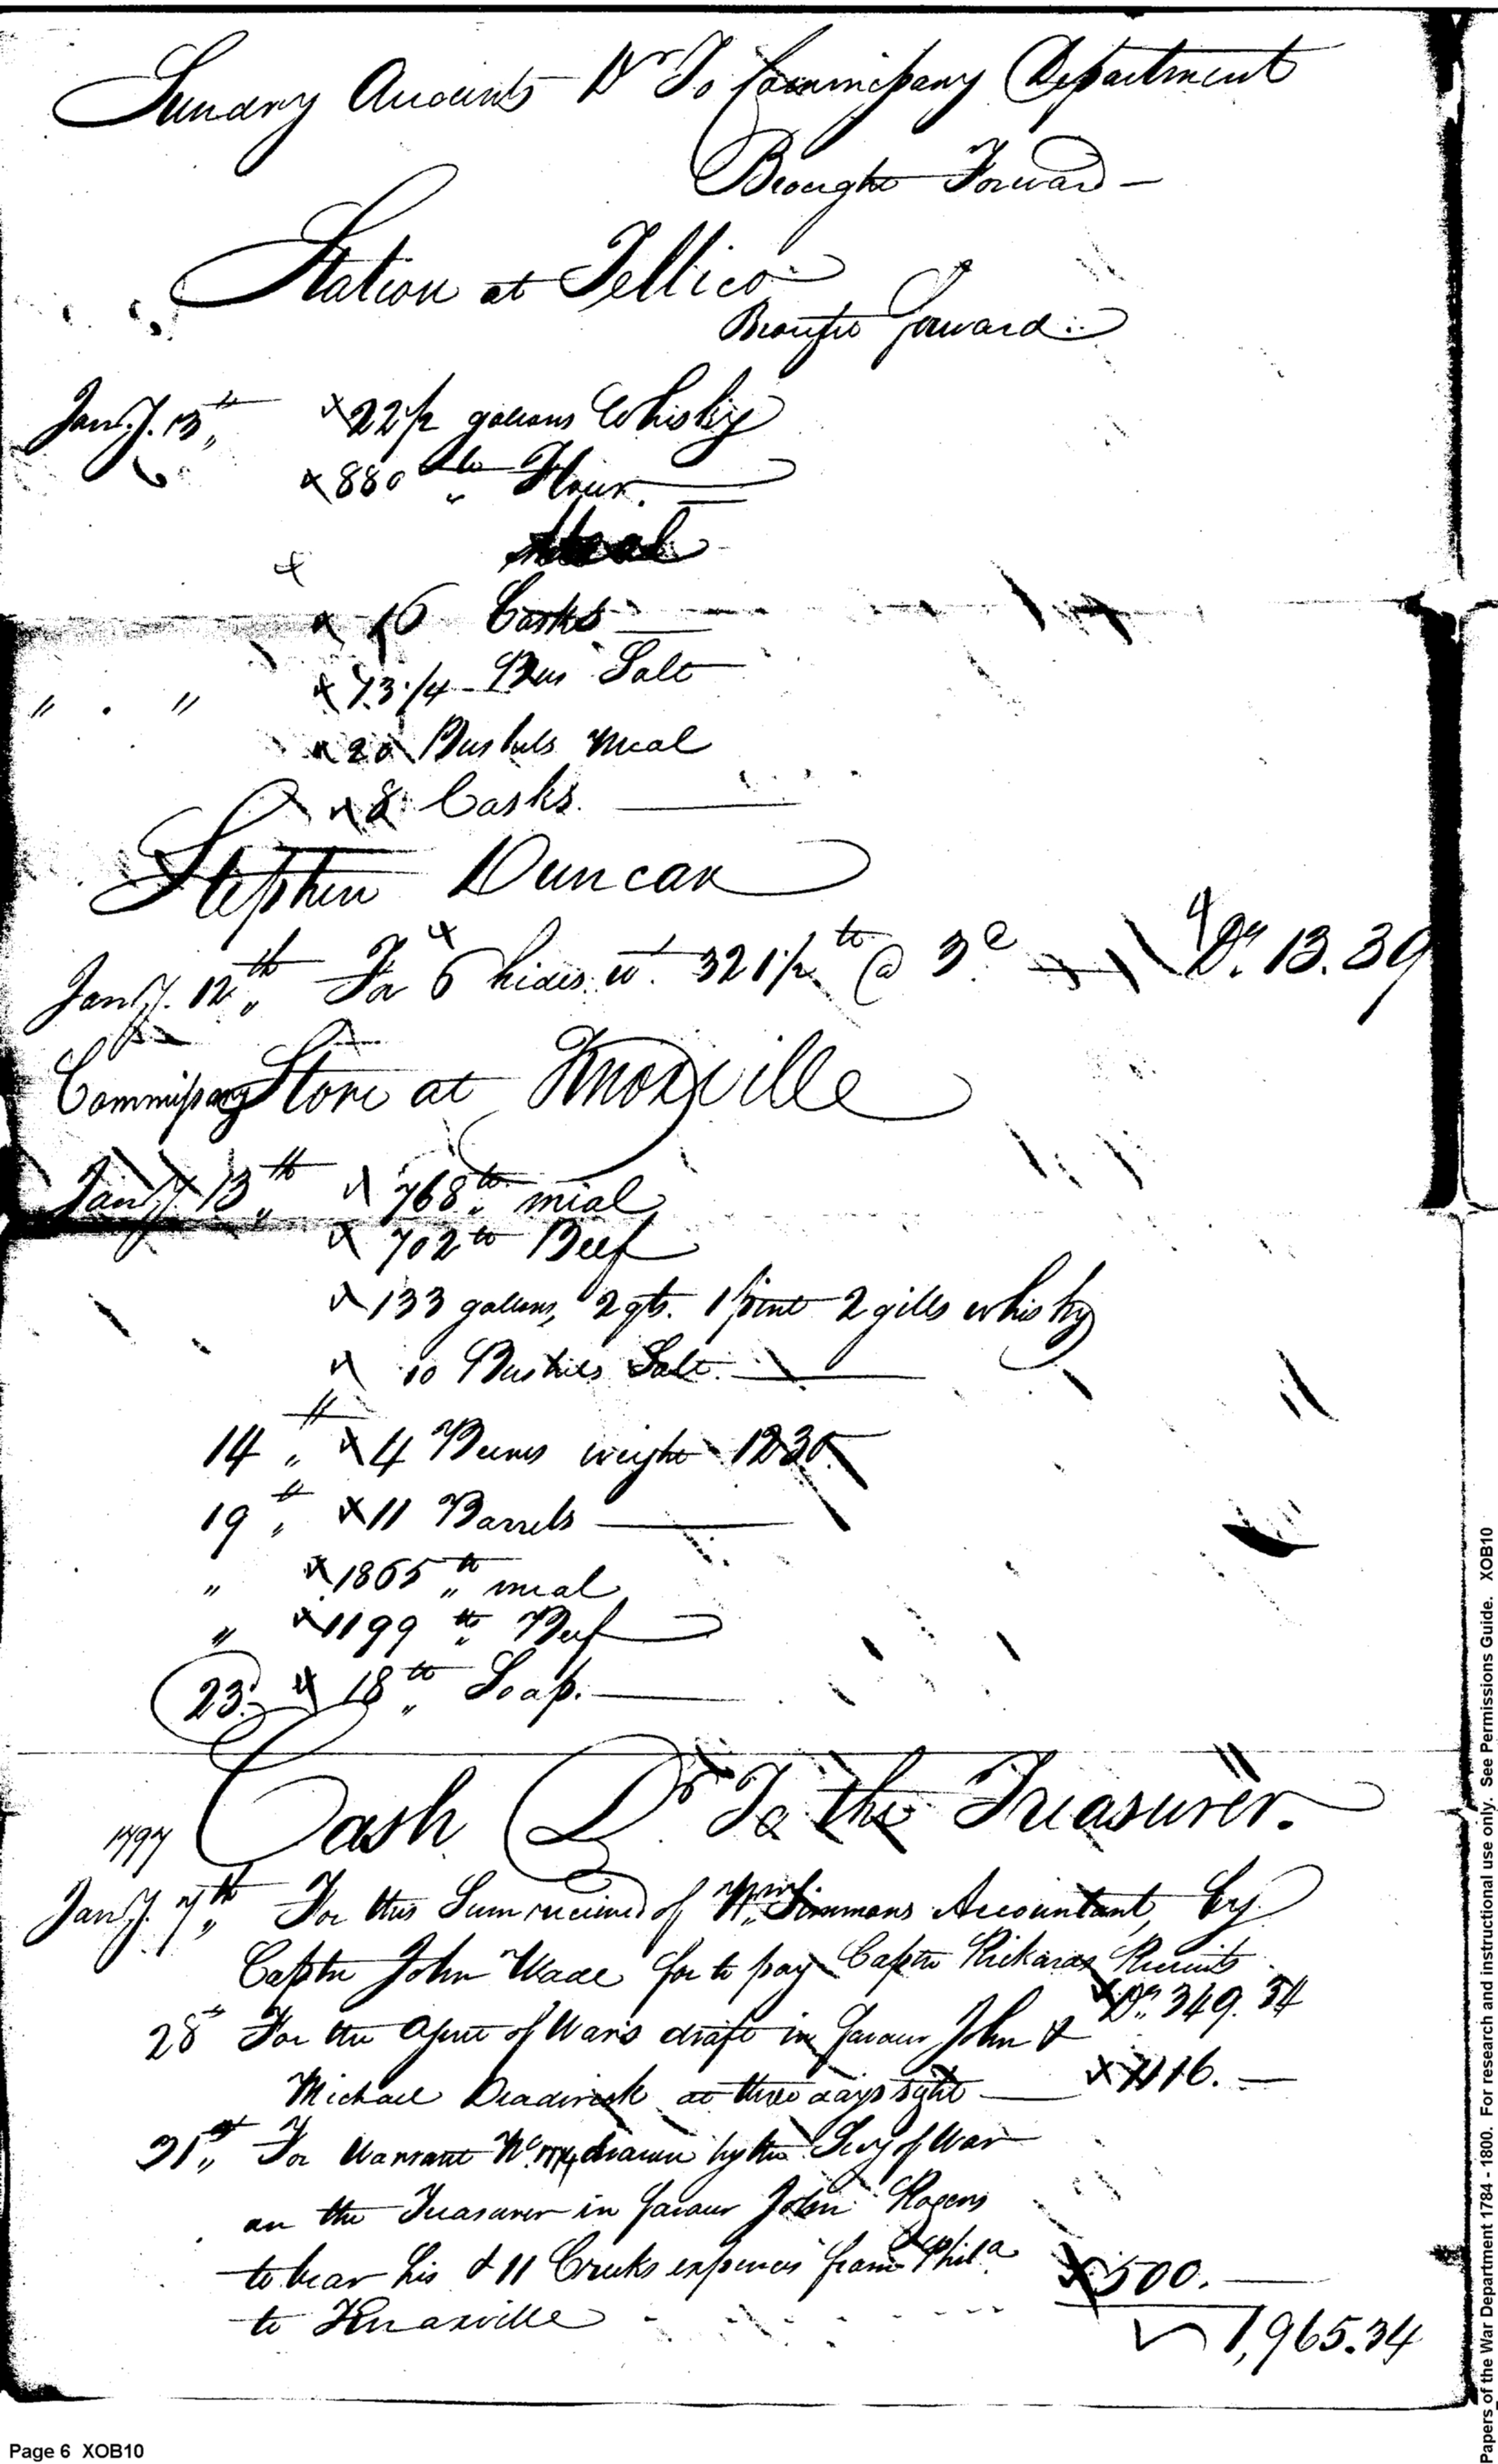 Sundry Accounts Dr To Commissary Department
Brought Forward
Station at Tellico
Brought forward
Jany. 13th 22 1/2 gallons Whisky
880 lb Flour
Meal
16 Casks
73 1/4 Bus Salt
" . " 
20 Bushels Meal
8 Casks
Stephen Duncan
Jany. 12th For 6 hides wt. 321 1/2 lb @ 3 Ds. 13.39
Commissary Store at Knoxville
Jany. 13th 768 lb meal
702 lb Beef
133 gallons, 2 qts. 1 pint 2 gills whisky
10 Bushels Salt
14th 4 Beeves weight 1230
19th 11 Barrels
" 1865 lb meal
" 1199 lb Beef
23. 18 lb Soap.
Cash Dr To the Treasurer.
1797
Jany. 7th For this Sum received of Wm Simmons Accountant, by
Captn John Wade for to pay Captn Rickards Recruits
Ds. 349.34
28th For the Agent of Wars draft in favour John &
Michael Deadirick at three days sight 1116.
31st For Warrant No. drawn by the Secy of War
on the Treasurer in favour John Rogers
to bear his & 11 Creeks expences from Phila
to Knoxville 500.
1,965.34
Page 6 XOB10
Papers of the War Department 1784 - 1800. For research and instructional use only. See Permissions Guide. XOB10